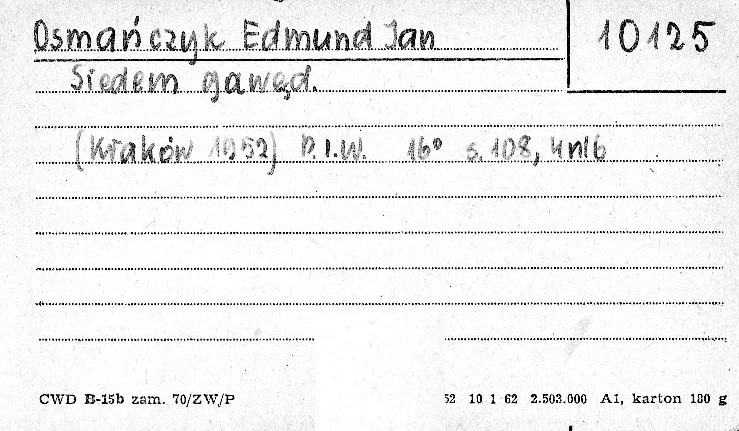 Osmańczyk Edmund Jan
10125
Siedem gawęd.
(Kraków 1952) P.I.W. 16° s. 108, 4 nlb
CWD B-15b zam. 70/ZW/P
52 10 1 62 2.503.000 A1, karton 180 g